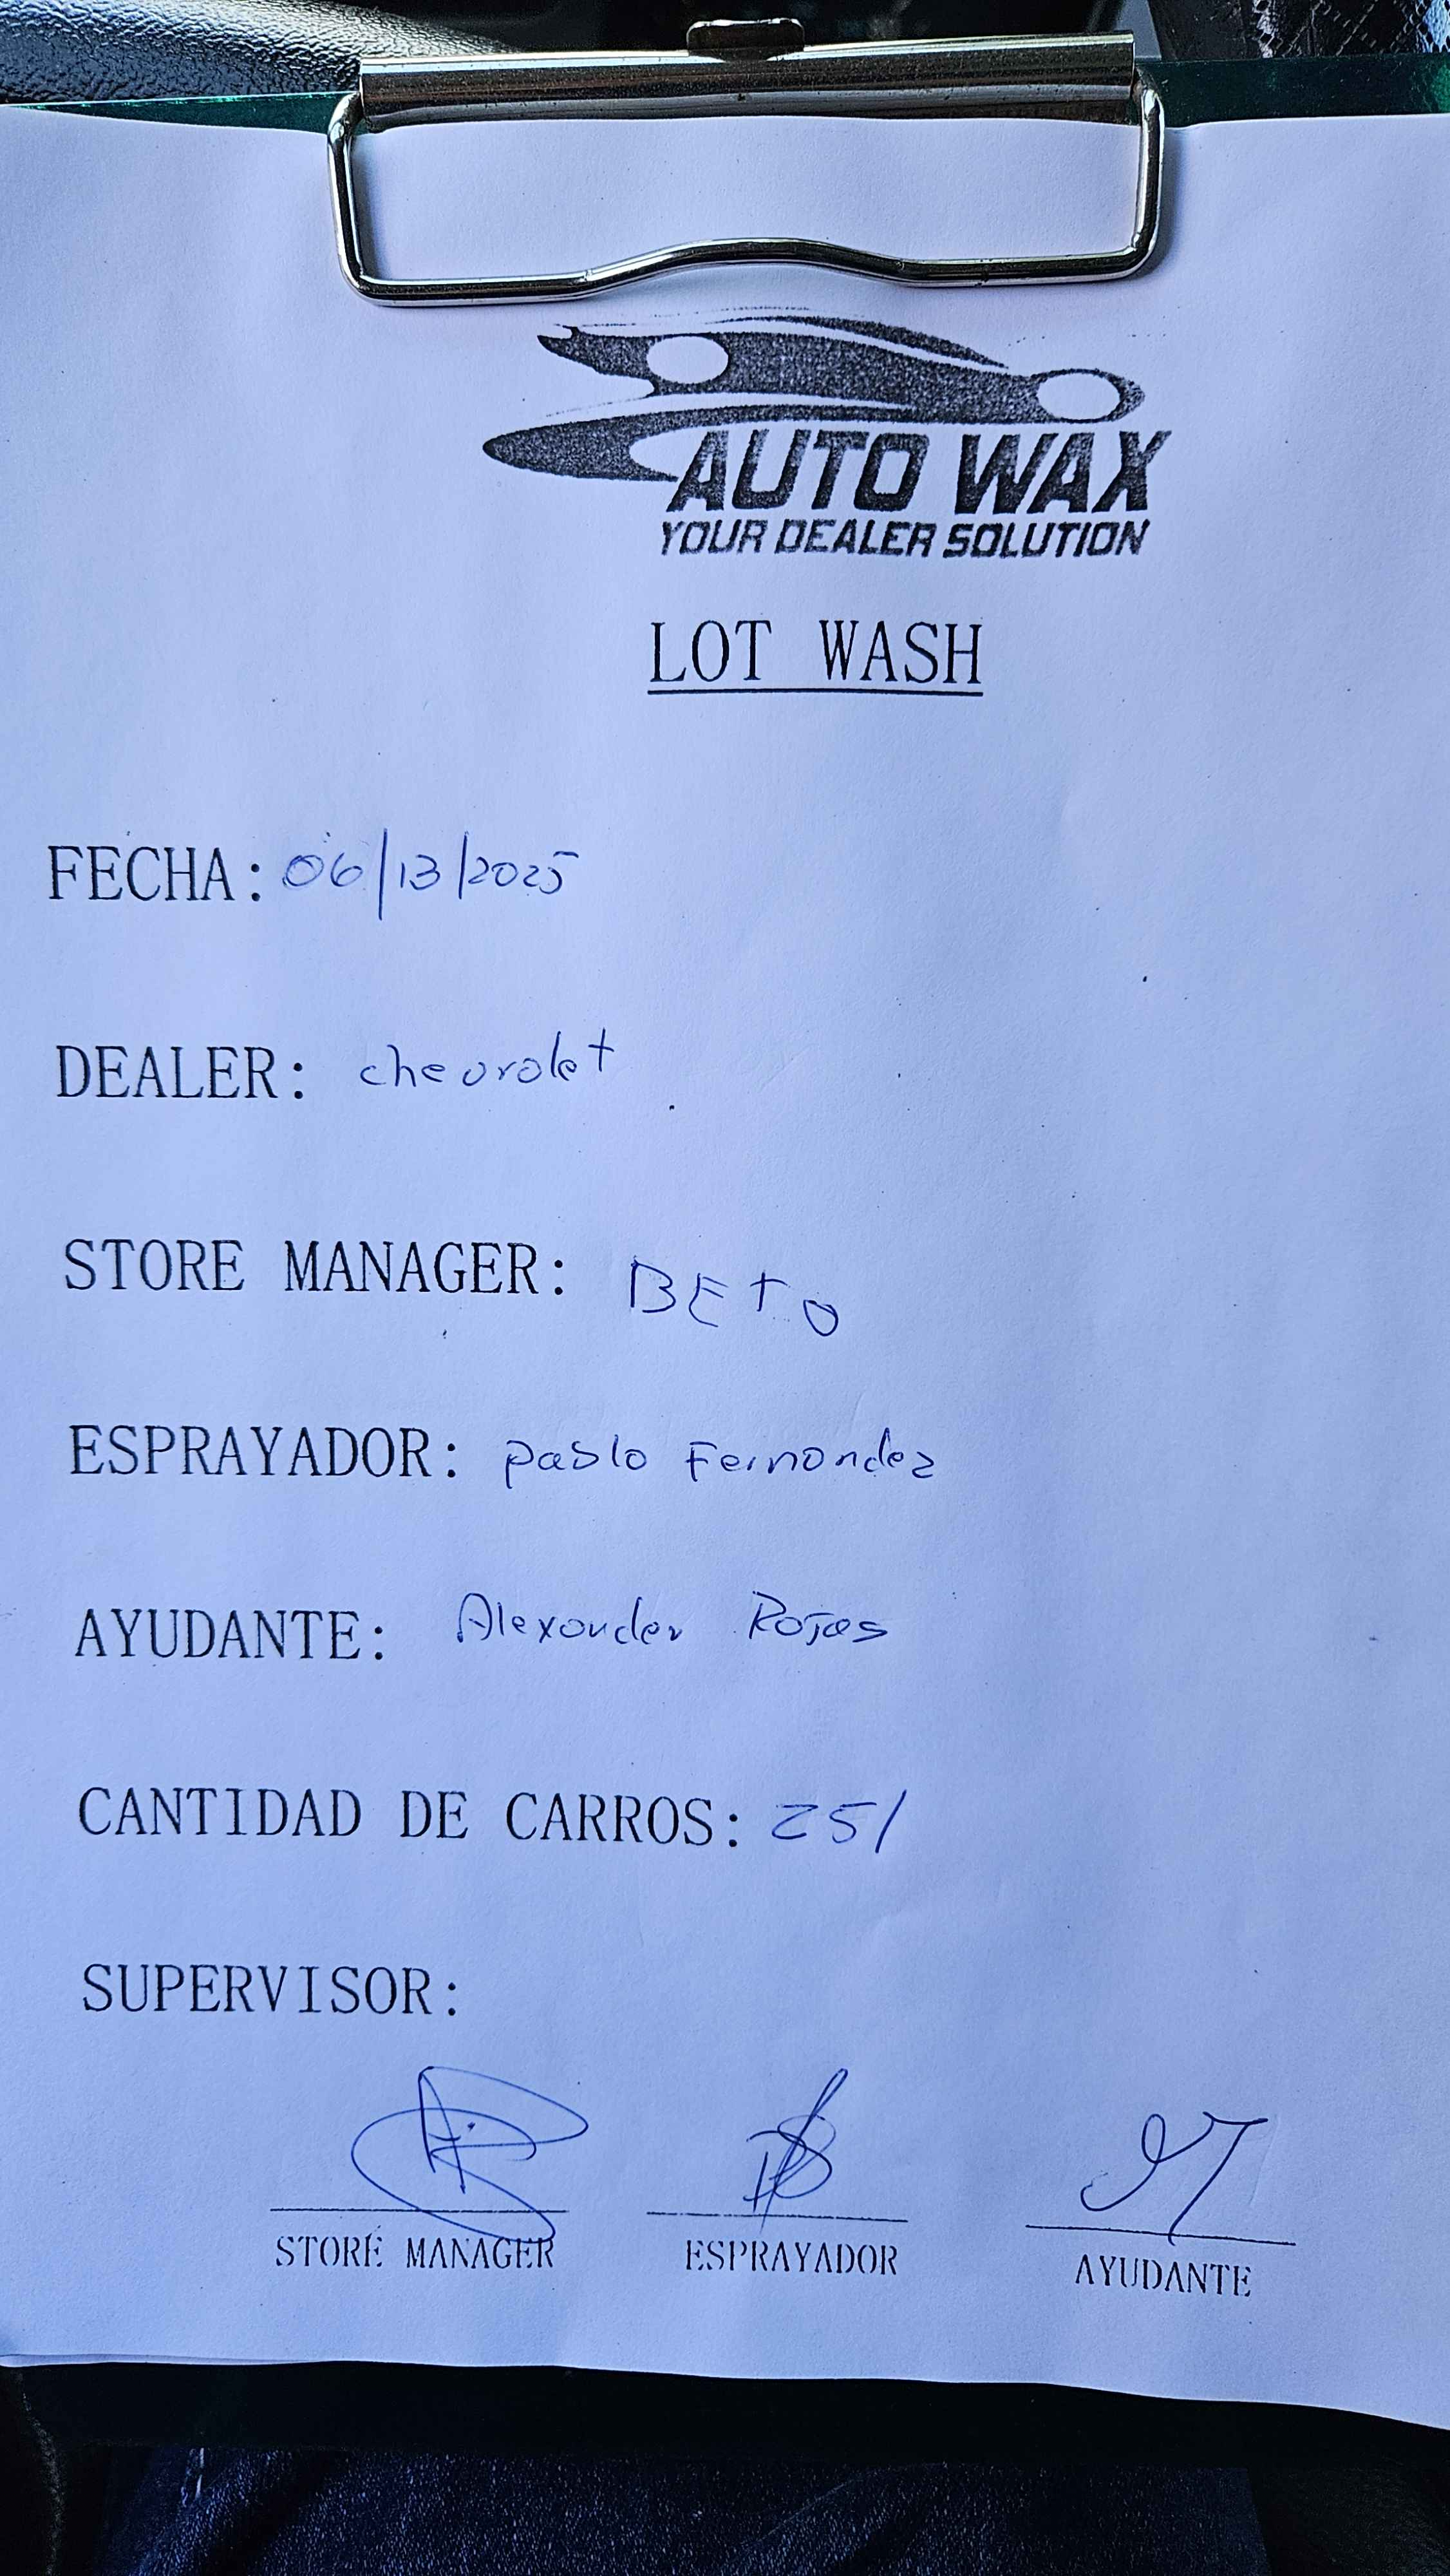 AUTO WAX
YOUR DEALER SOLUTION
LOT WASH
FECHA: 06/13/2025
DEALER: chevrolet
STORE MANAGER: BETO
ESPRAYADOR: pablo Fernandez
AYUDANTE: Alexander Rojas
CANTIDAD DE CARROS: 251
SUPERVISOR:
STORE MANAGER ESPRAYADOR AYUDANTE